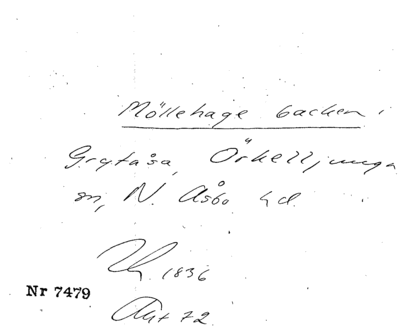 Möllehage backen i
Grytåsa, Örkelljunga
sn, N. Åsbo hd.
1836
Nr 7479
72